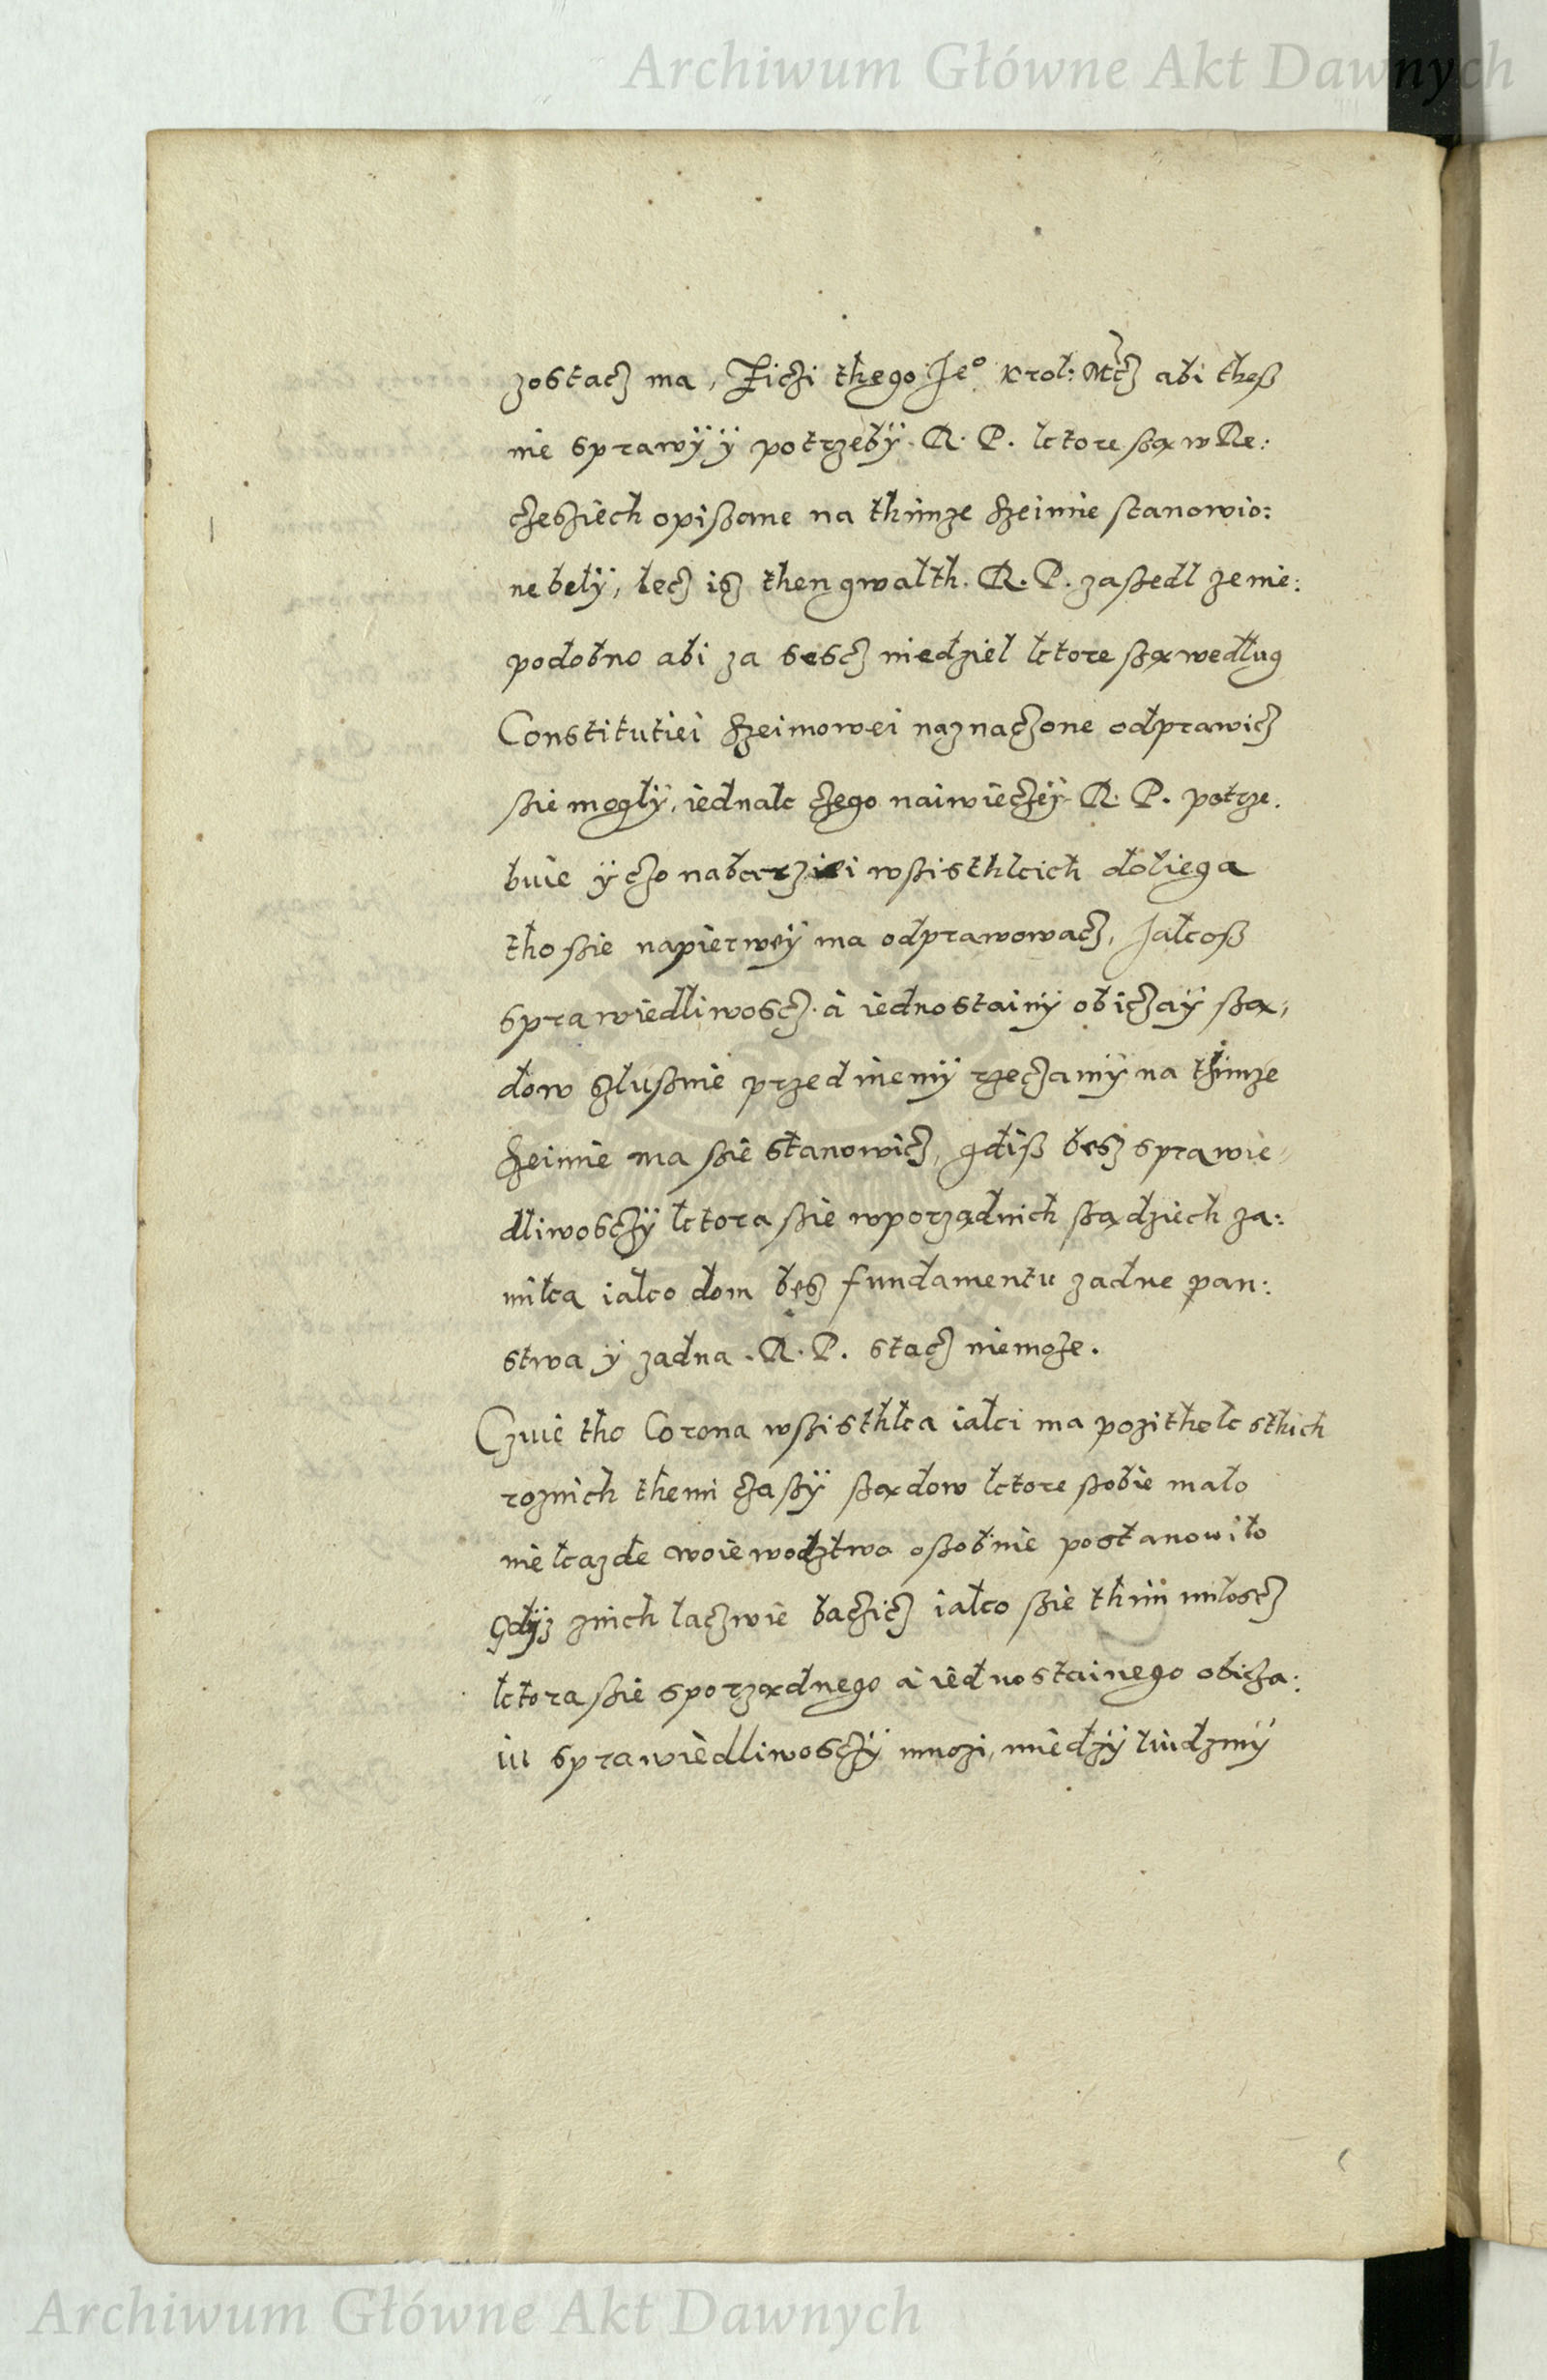 Archiwum Główne Akt Dawnych
zostacz ma, Ziczi thego Je° Krol: Mcz abi theß
nie sprawÿ ÿ potrzebÿ. R. P. ktore ßą w Re:
czeßiech opißane na thimze Szeimie stanowio:
ne belÿ, lecz isz then gwalth. R. P. zaßedl ze nie:
podobno abi za sescz niedziel ktore ßą według
Constitutiei Szeimowei naznaczone odprawicz
ßie mogłÿ, iednak czego naiwieczeÿ R. P. potrze.
buie ÿ czo nabarziei wßisthkich doliega
tho ßie napierweÿ ma odprawowacz, Jakoß
sprawiedliwoscz. a iednostainÿ obiczaÿ ßą,
dow szlußnie przed inemÿ rzeczamÿ na thimze
Szeimie ma ßie stanowicz, gdiß besz sprawie
dliwosczÿ ktora ßie w porządnich ßądziech za:
mika iako dom besz fundamentu zadne pan:
stwa ÿ zadna. R. P. stacz niemoze.
Czuie tho Corona wßisthka iaki ma pozithek s thich
roznich themi czaßÿ ßądow ktore ßobie mało
nie kazde woiewodztwo oßobnie postanowiło
gdÿz z nich laczwie baczicz iako ßie thim miloscz
ktora ßie s porządnego a iednostainego obicza:
iu sprawiedliwosczÿ mnozi, miedzÿ liudzmÿ
Archiwum Główne Akt Dawnych